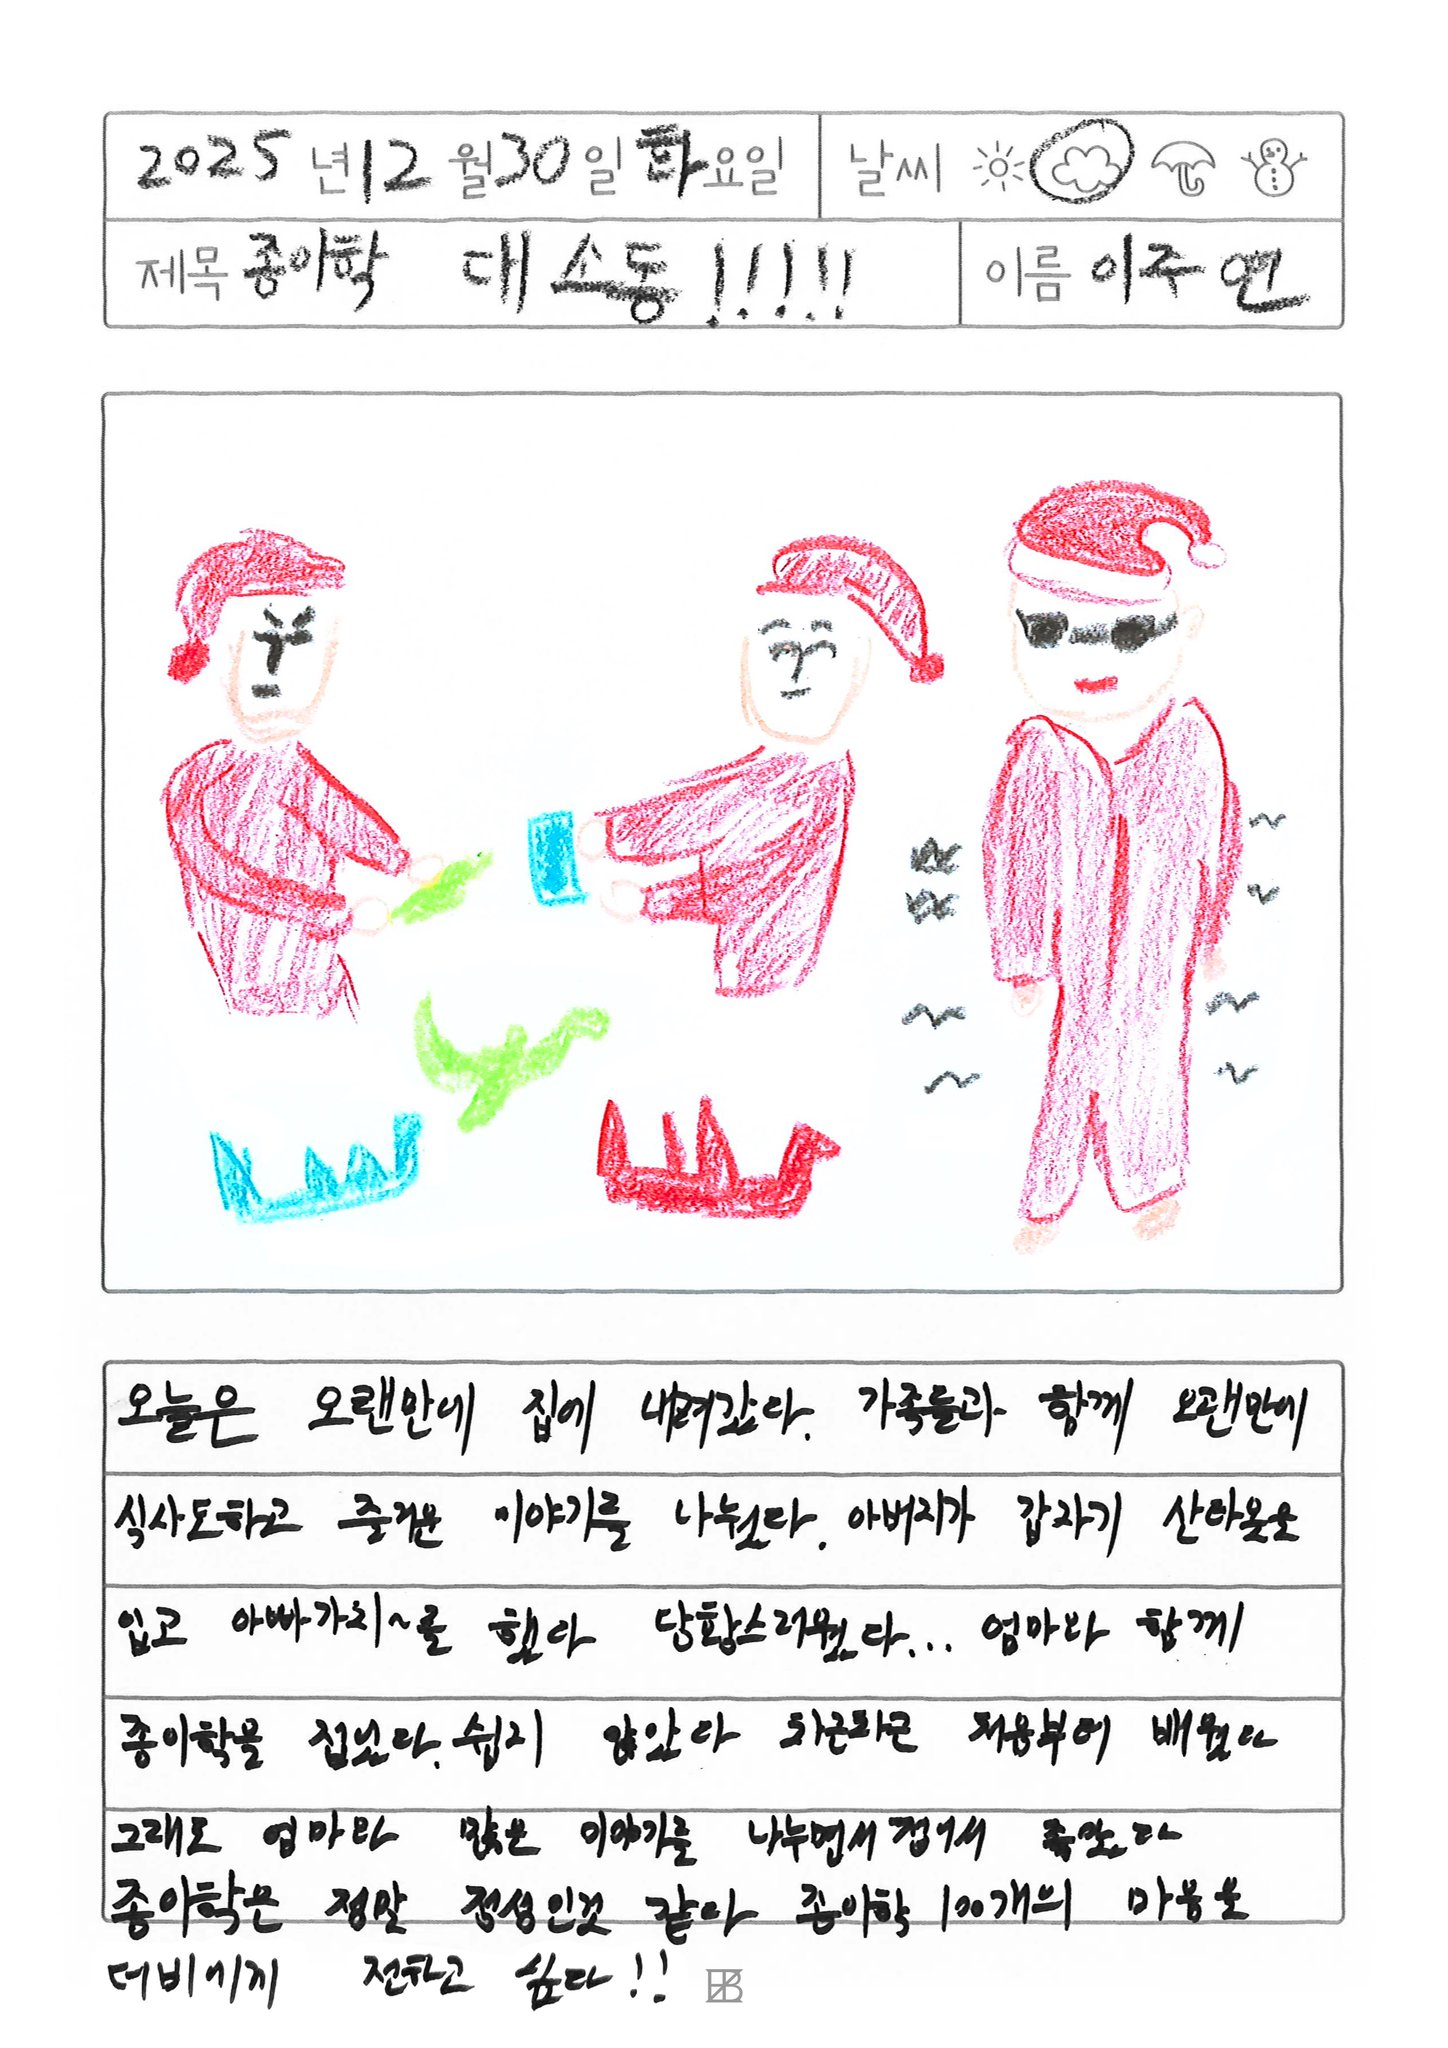 2025년 12월 30일 화요일 날씨
제목 종이학 대소동!!!!! 이름 이주연
오늘은 오랜만에 집에 내려갔다. 가족들과 함께 오랜만에
식사도하고 즐거운 이야기를 나눴다. 아버지가 갑자기 산타옷을
입고 아빠가치~를 했다 당황스러웠다... 엄마와 함께
종이학을 접었다. 쉽지 않았다 차근차근 처음부터 배웠다
그래도 엄마와 많은 이야기를 나누면서 접어서 좋았다
종이학은 정말 정성인것 같아 종이학 100개의 마음을
더비에게 전하고 싶다!!